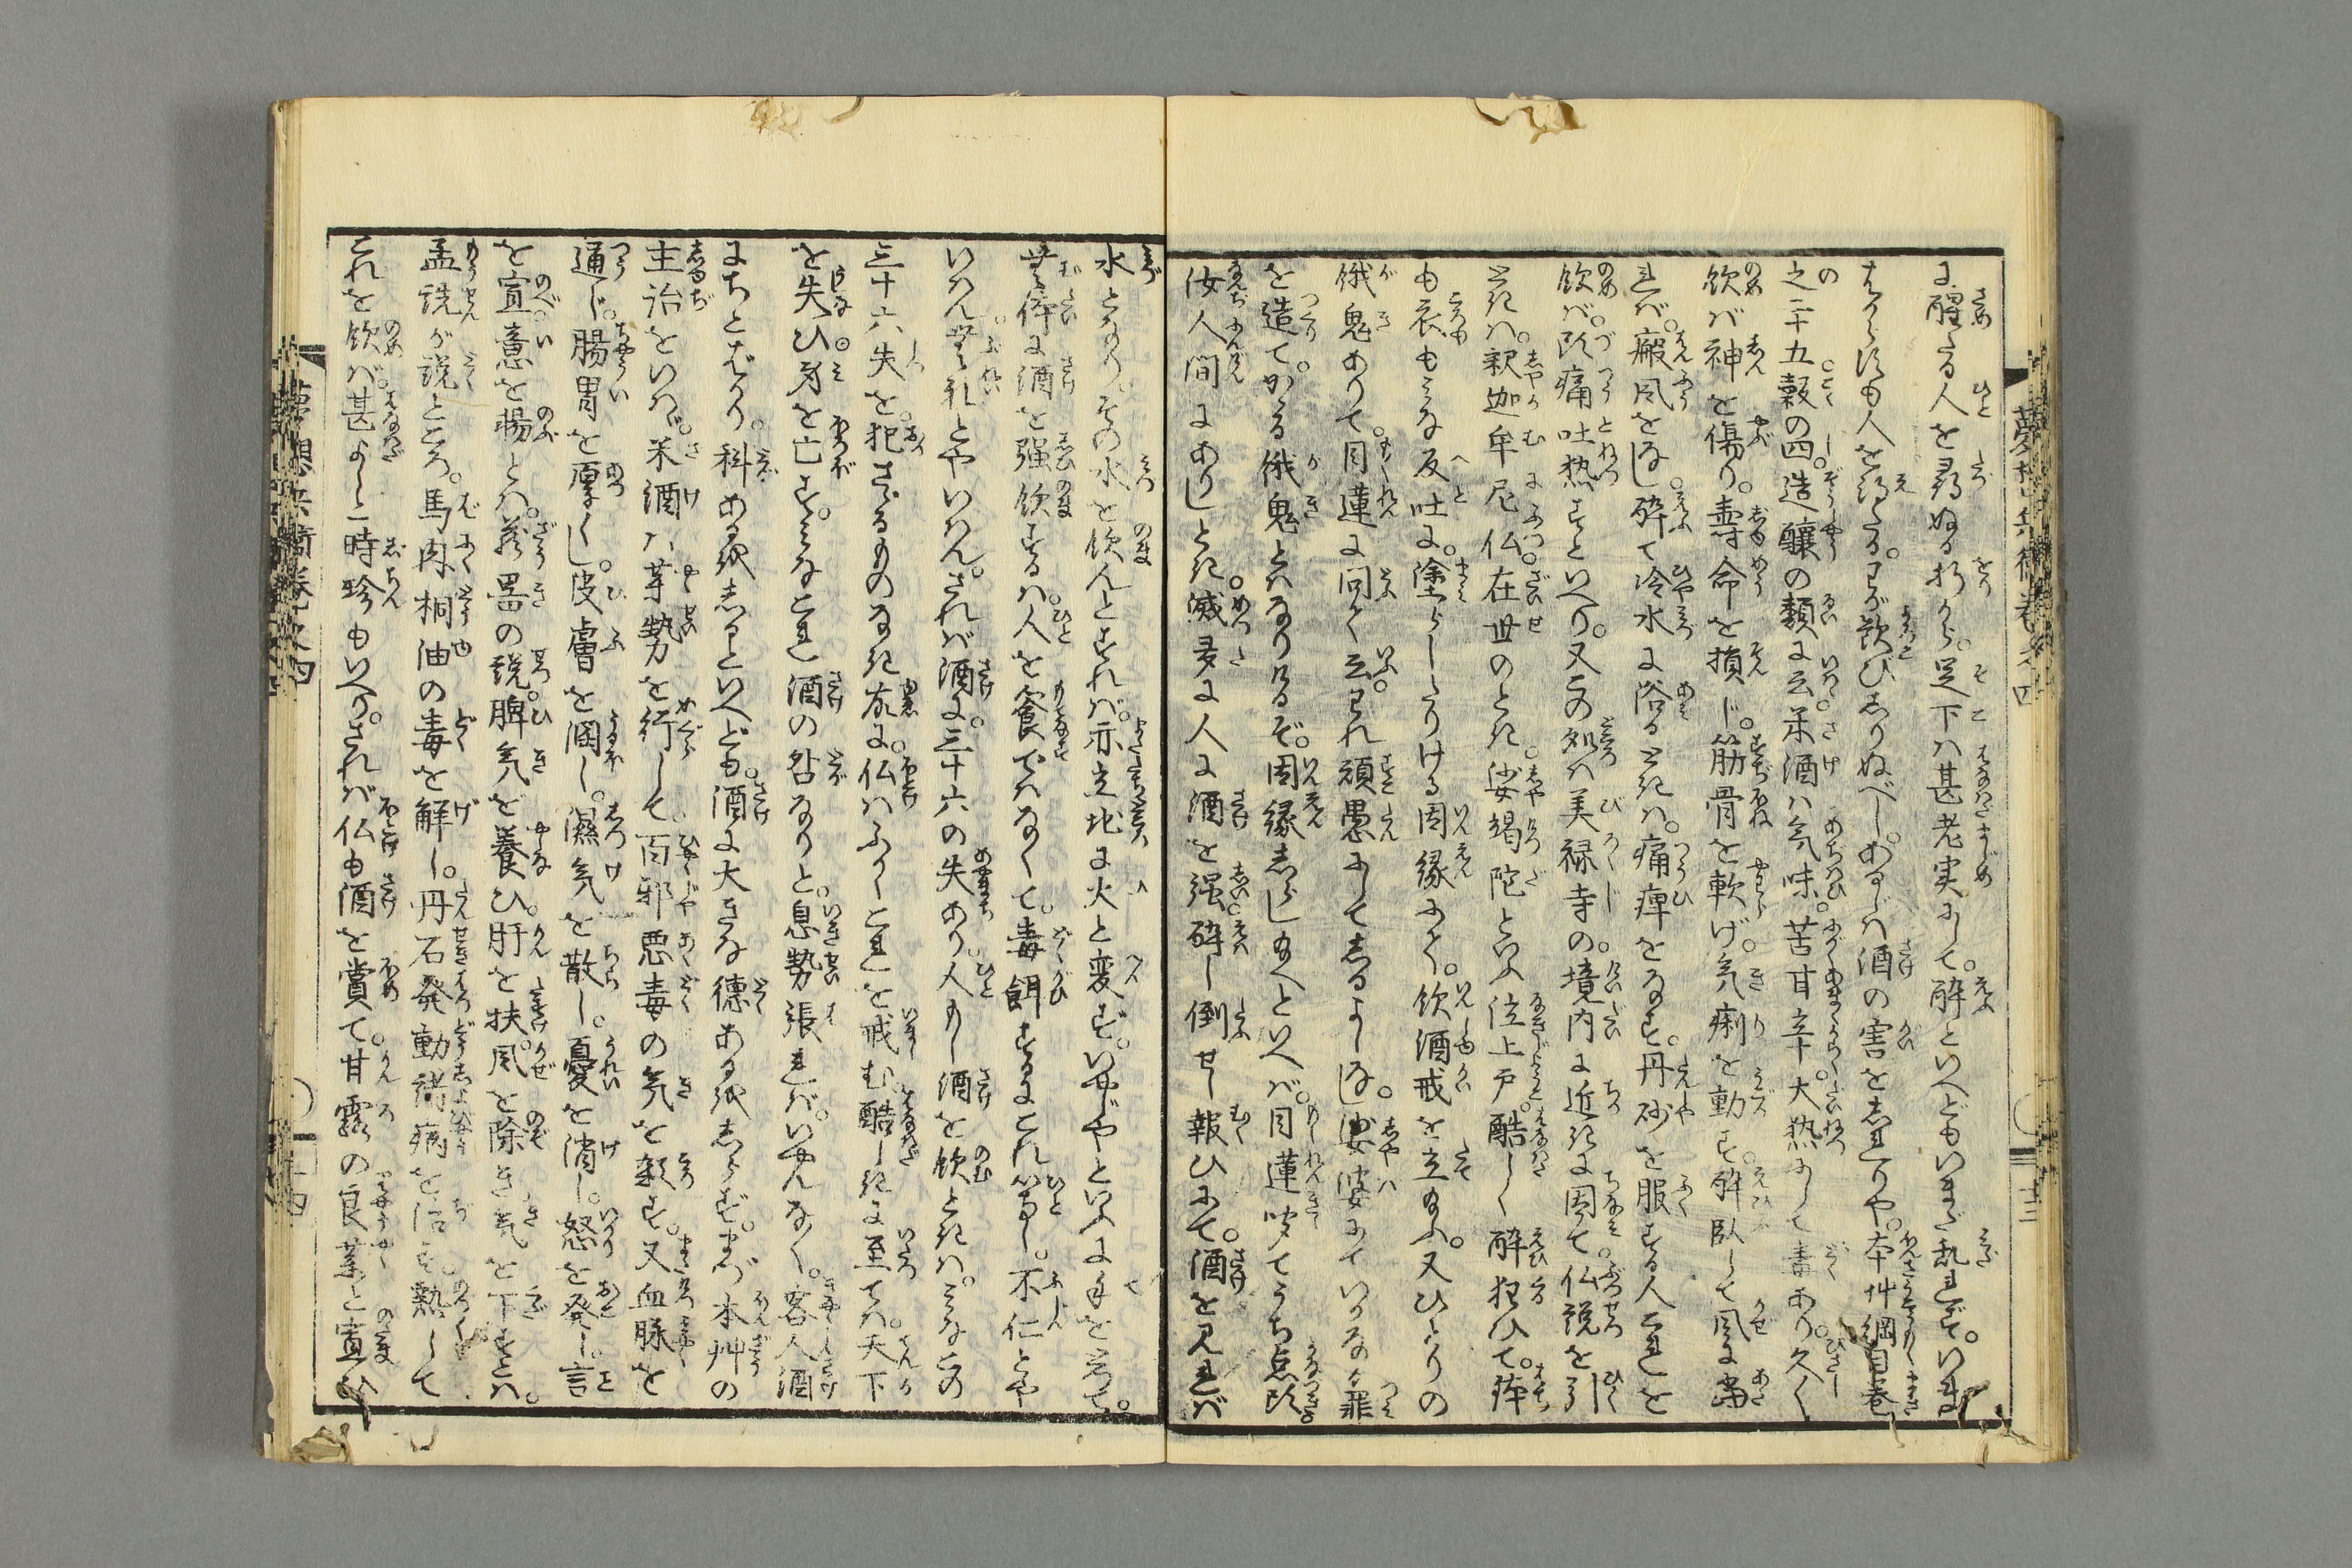 夢想兵衛巻之四
に醒たる人を尋ぬる折から。足下は甚老実にて。酔といへどもいまだ乱れず。いま
はからずも人を得たる。わが歓びしりぬべし。あるじは酒の害をしれりや。本艸綱目巻
之二十五穀の四造醸の類に云。米酒は気味。苦甘辛。大熱にして毒あり。久く
飲ば神を傷り。寿命を損じ。筋骨を軟げ。気痢を動す。酔臥して風に当
れば。癜風をなし。酔て冷水に浴るときは。痛痺をなす。丹砂を服する人これを
飲ば。頭痛吐熱すといへり。又この処は美禄寺の。境内に近きに因て。仏説を引
ときは。釈迦牟尼仏。在世のとき。娑竭陀といふ位上戸。酷しく酔狂ひて。鉢
も衣もみな反吐に。塗らしたりける因縁にて。飲酒戒を立給ふ。又ひとりの
餓鬼ありて。目蓮に問て云。われ頑愚にしてしるよしなし。娑婆にていかなる罪
を造て。かゝる餓鬼とはなりけるぞ。因縁しらし給へといへば。目蓮聞てうち点頭
汝人間にありしとき。滅多に人に酒を強。酔し倒せし報ひにて。酒を見れば
十三
水となり。その水を飲んとすれば。亦立地に火と変ず。いざやといふに手を拱て。
無体に酒を強飲するは。人を養ではなくて。毒餌するにこれ等し。不仁とや
いはん無礼とやいはん。されば酒に。三十六の失あり。人もし酒を飲ときは。みなこの
三十六失を。犯さゞるものなき故に。仏はふかくこれを戒む。酷しきに至ては。天下
を失ひ。身を亡す。みなこれ酒の咎なりと。息勢張れば。いせんなく。客人酒
にちとばかり。科めるをしるといへども。酒に大きな徳あるをしらず。まづ本艸の
主治をいはゞ。米酒は芽勢を行して。百邪悪毒の気を殺す。又血脉を
通じ。腸胃を厚くし。皮膚を潤し。濕気を散し。憂を消し。怒を発し。言
を宣。意を揚とは。蔵器の説。脾気を養ひ。肝を扶。風を除き気を下すとは。
孟詵が説ところ。馬肉桐油の毒を解し。丹石発動諸病を治す。熱して
これを飲ば。甚よしと時珍もいへり。されば仏も酒を賞て。甘露の良薬と宣ひ
夢想兵衛巻之四
十四